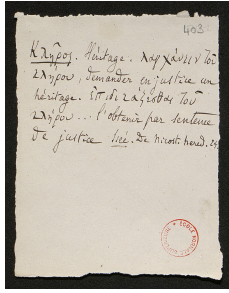 403
Κλῆρος. Héritage. λαγχάνειν τοῦ
κλήρου, demander en justice un
héritage. ἐπιδικάζεσθαι τοῦ
κλήρου... l'obtenir par sentence
de justice. De Nicostr. hered.